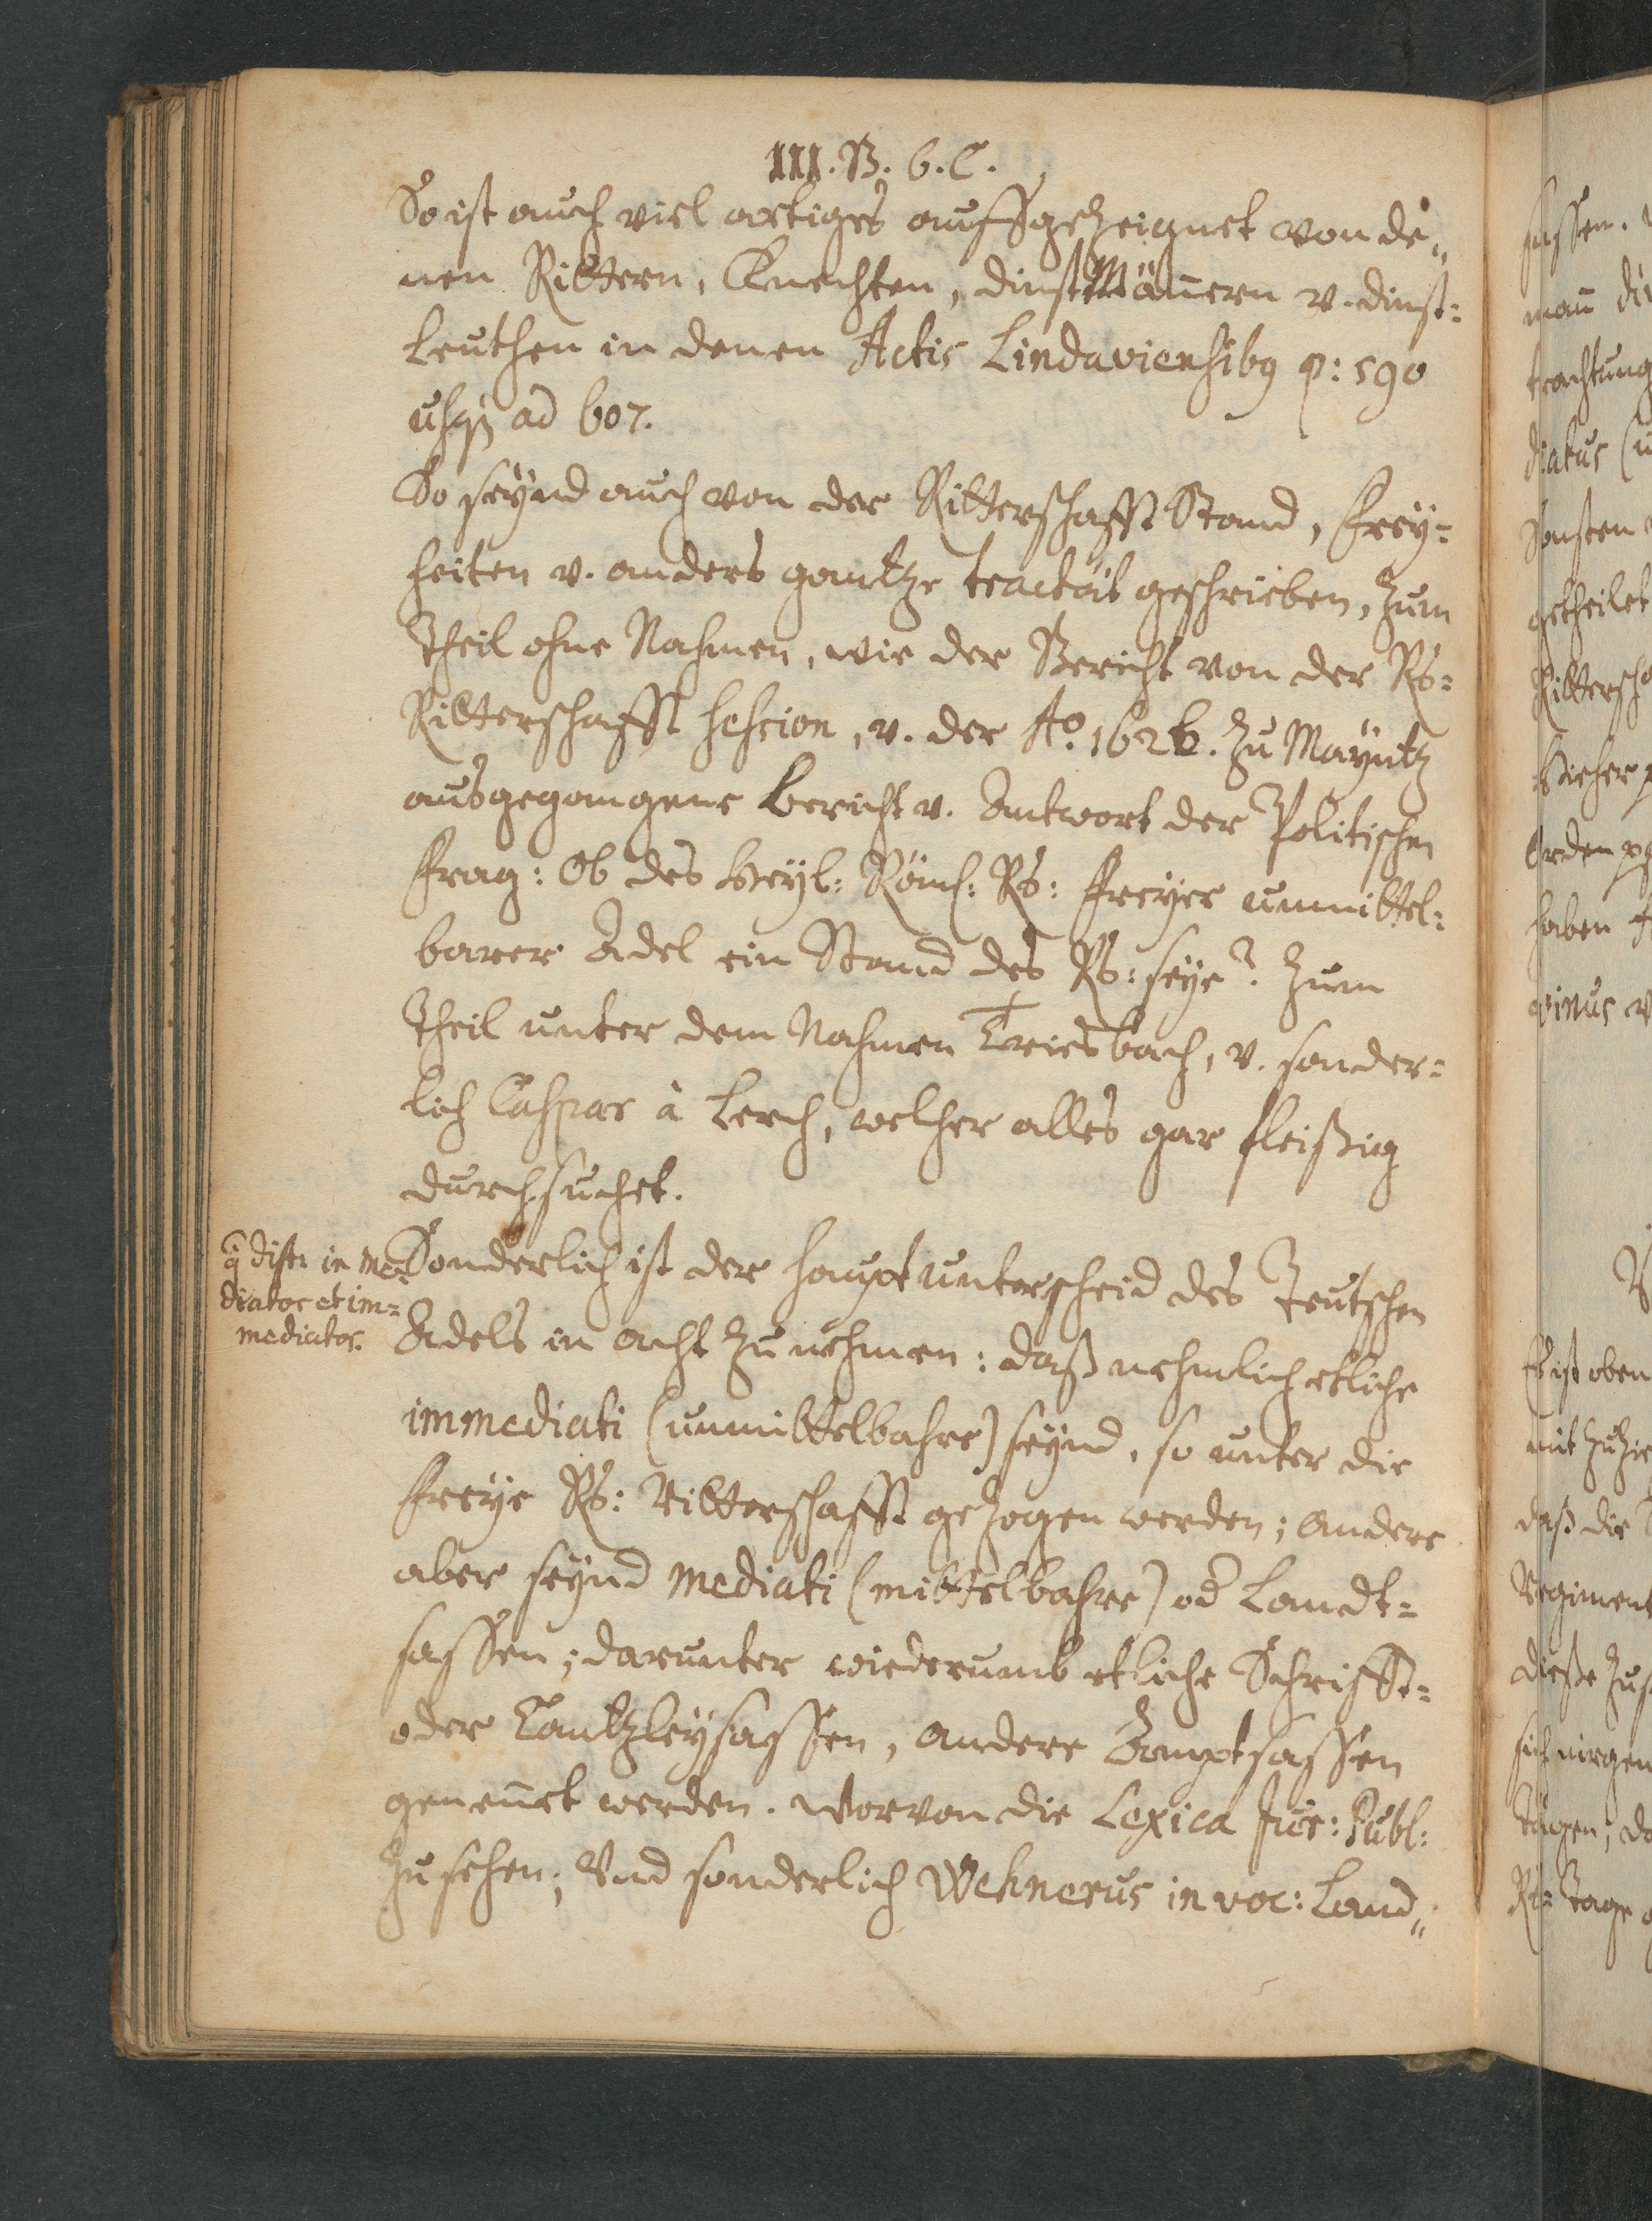 III. B. 6. C.
So ist auch viel artiges auffgezeignet von de„
nen Rittern, Knechten, dinst Mäñern v. dinst=
leuthen in denen Actis Lindaviensibg p: 590
usqz ad 607.
So seÿnd auch von der Ritterschafft Stand, Freÿ=
heiten v. anders gantze tractät geschrieben, zum
Theil ohne Nahmen, wie der Bericht von der Rs=
Ritterschafft session, v. der Aº. 1626. zu Maÿntz
ausgegangene Bericht v. Antwort der Politischen
Frag: Ob des Heÿl: Röms: Rs: Freÿer unmittel=
barer Adel ein Stand des Rs: seÿe? Zum
Theil unter dem Nahmen Criesbach, v. sonder=
lich Caspar à Lerch, welcher alles gar fleißig
durchsuchet.
q̃ dist: in me=
diatos et im=
mediatos.
Sonderlich ist der Hauptunterscheid des Teutschen
Adels in acht zu nehmen: daß nehmlich etliche
immediati (unmittelbahre) seÿnd, so unter die
Freÿe Rs: Ritterschafft gezogen werden; andere
aber seÿnd mediati (mittelbahre) od Landt=
sassen; darunter wiederumb etliche Schrifft=
oder Cantzleÿsassen, andere Amptsassen
geneñet werden. Worvon die Lexica Jur: Publ:
zu sehen; Und sonderlich Wehnerus in voc: Land„
sassen.
mañ
trachtung
diatus
Sonsten
getheilet
Rittersch
Orden
haben
Es ist oben
mit
daß die
Regiment
dieße
sich nirgen
Rs= Tage